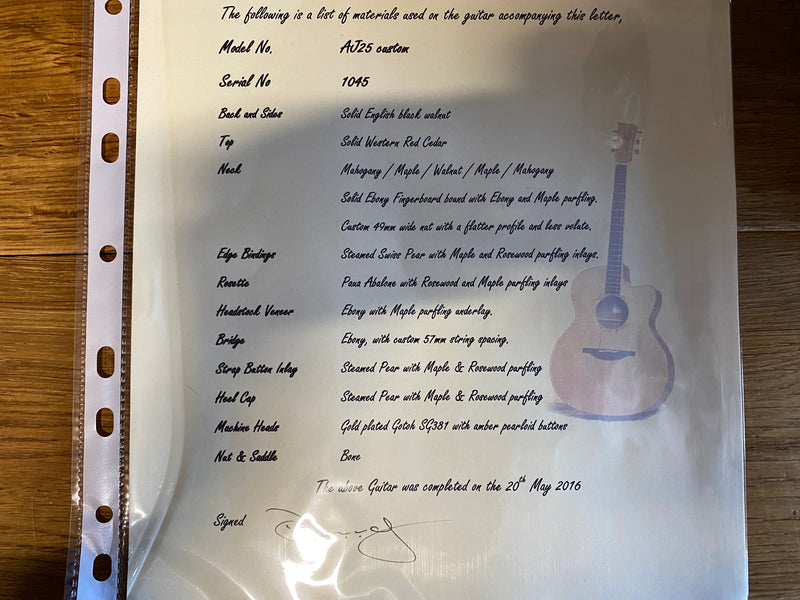 The following is a list of materials used on the guitar accompanying this letter,
Model No. AJ25 custom
Serial No 1045
Back and Sides Solid English black walnut
Top Solid Western Red Cedar
Neck Mahogany / Maple / Walnut / Maple / Mahogany
Solid Ebony Fingerboard bound with Ebony and Maple purfling.
Custom 49mm wide nut with a flatter profile and less volute.
Edge Bindings Steamed Swiss Pear with Maple and Rosewood purfling inlays.
Rosette Paua Abalone with Rosewood and Maple purfling inlays
Headstock Veneer Ebony with Maple purfling underlay.
Bridge Ebony, with custom 57mm string spacing.
Strap Button Inlay Steamed Pear with Maple & Rosewood purfling
Heel Cap Steamed Pear with Maple & Rosewood purfling
Machine Heads Gold plated Gotoh SG381 with amber pearloid buttons
Nut & Saddle Bone
The above Guitar was completed on the 20th May 2016
Signed